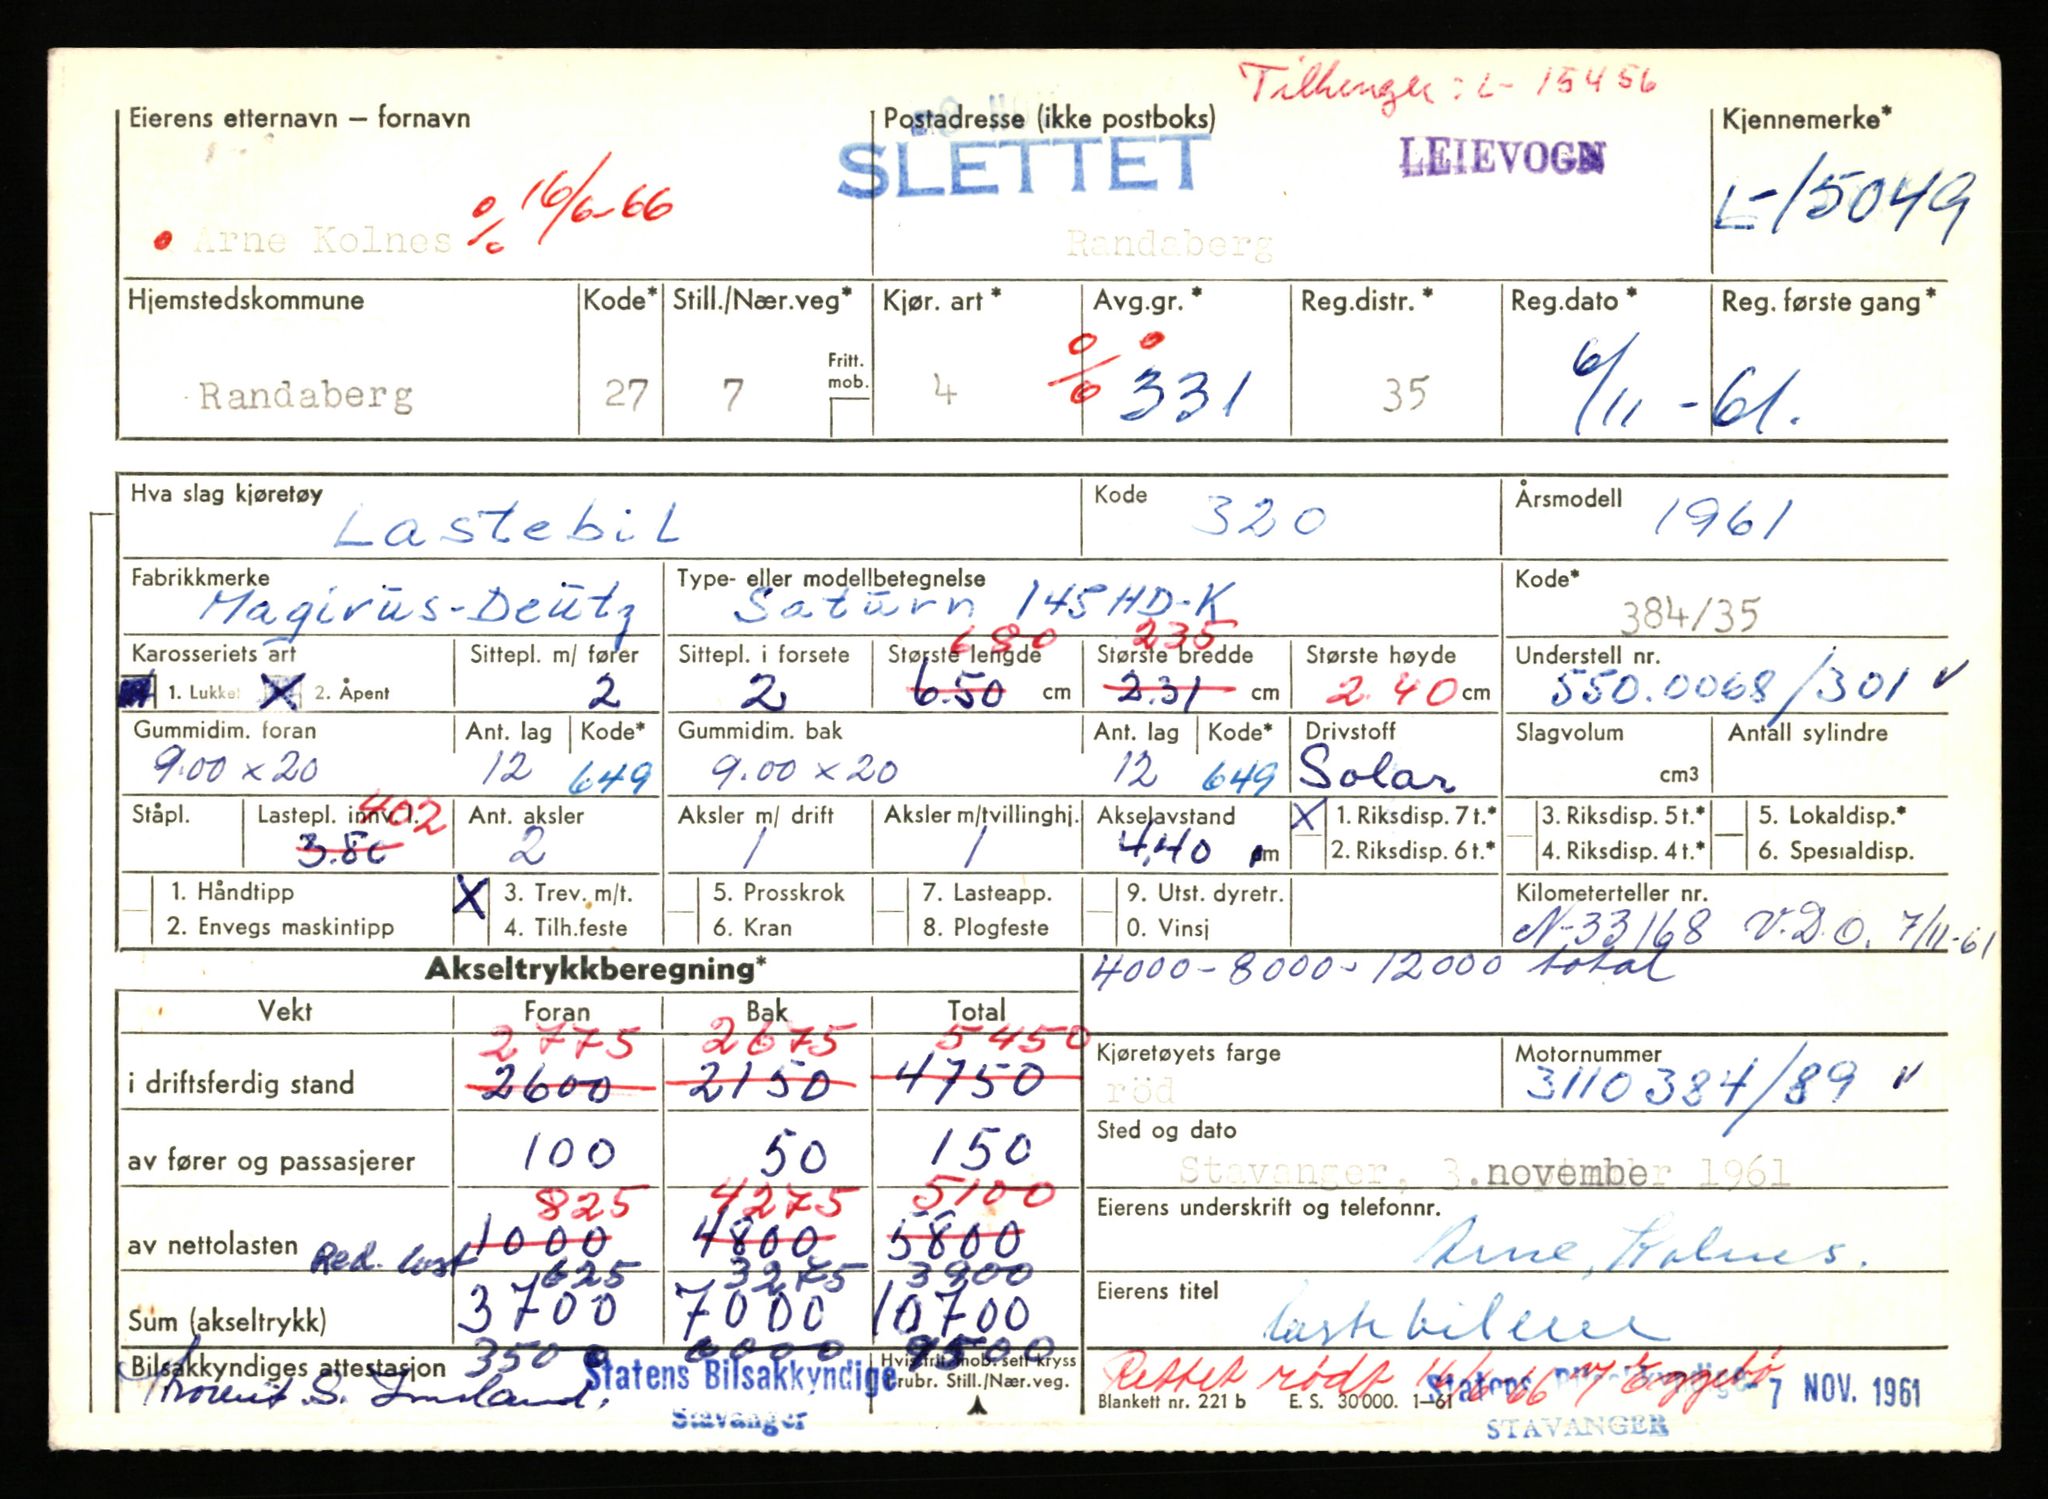 Tilhenger: L- 15456
Eierens etternavn – fornavn
Postadresse (ikke postboks)
Kjennemerke*
SLETTET
LEIEVOGN
L-15049
Arne Kolnes % 16/6-66
Randaberg
Hjemstedskommune Kode* Still./Nær.veg* Kjør. art* Avg.gr.* Reg.distr.* Reg.dato* Reg. første gang*
Fritt. mob.
Randaberg 27 7 4 % 331 35 6/11 -61.
Hva slag kjøretøy Kode Årsmodell
Lastebil 320 1961
Fabrikkmerke Type- eller modellbetegnelse Kode*
Magirus-Deutz Saturn 145HD-K 384/35
680 235
Karosseriets art Sittepl. m/ fører Sittepl. i forsete Største lengde Største bredde Største høyde Understell nr.
1. Lukket X 2. Åpent 2 2 6.50 cm 2.31 cm 2.40 cm 550.0068/301
Gummidim. foran Ant. lag Kode* Gummidim. bak Ant. lag Kode* Drivstoff Slagvolum Antall sylindre
9.00 x 20 12 649 9.00 x 20 12 649 Solar cm3
402
Ståpl. Lastepl. innv. l. Ant. aksler Aksler m/ drift Aksler m/tvillinghj. Akselavstand X 1. Riksdisp. 7 t.* 3. Riksdisp. 5 t.* 5. Lokaldisp.*
3.80 2 1 1 4.40 m 2. Riksdisp. 6 t.* 4. Riksdisp. 4 t.* 6. Spesialdisp.
1. Håndtipp X 3. Trev. m/t. 5. Prosskrok 7. Lasteapp. 9. Utst. dyretr. Kilometerteller nr.
2. Envegs maskintipp 4. Tilh.feste 6. Kran 8. Plogfeste 0. Vinsj N-33168 V.D.O. 7/11-61
Akseltrykkberegning* 4000-8000-12000 total
Vekt Foran Bak Total
2775 2675 5450
i driftsferdig stand 2600 2150 4750
Kjøretøyets farge Motornummer
röd 3110384/89
av fører og passasjerer 100 50 150
Sted og dato
Stavanger, 3.november 1961
825 4275 5100
av nettolasten 1000 4800 5800
Red. last 625 3275 3900
Eierens underskrift og telefonnr.
Arne Kolnes.
Sum (akseltrykk) 3700 7000 10700
3500 6000 9500
Eierens titel
lastebileier
Bilsakkyndiges attestasjon
Statens Bilsakkyndige
Stavanger
Hvis fritt mob. sett kryss
i rubr. Still./Nær.veg.
Rettet rødt 16/6-66
Statens Bilsakkyndige
STAVANGER
7 NOV. 1961
Blankett nr. 221 b E. S. 30'000. 1–61